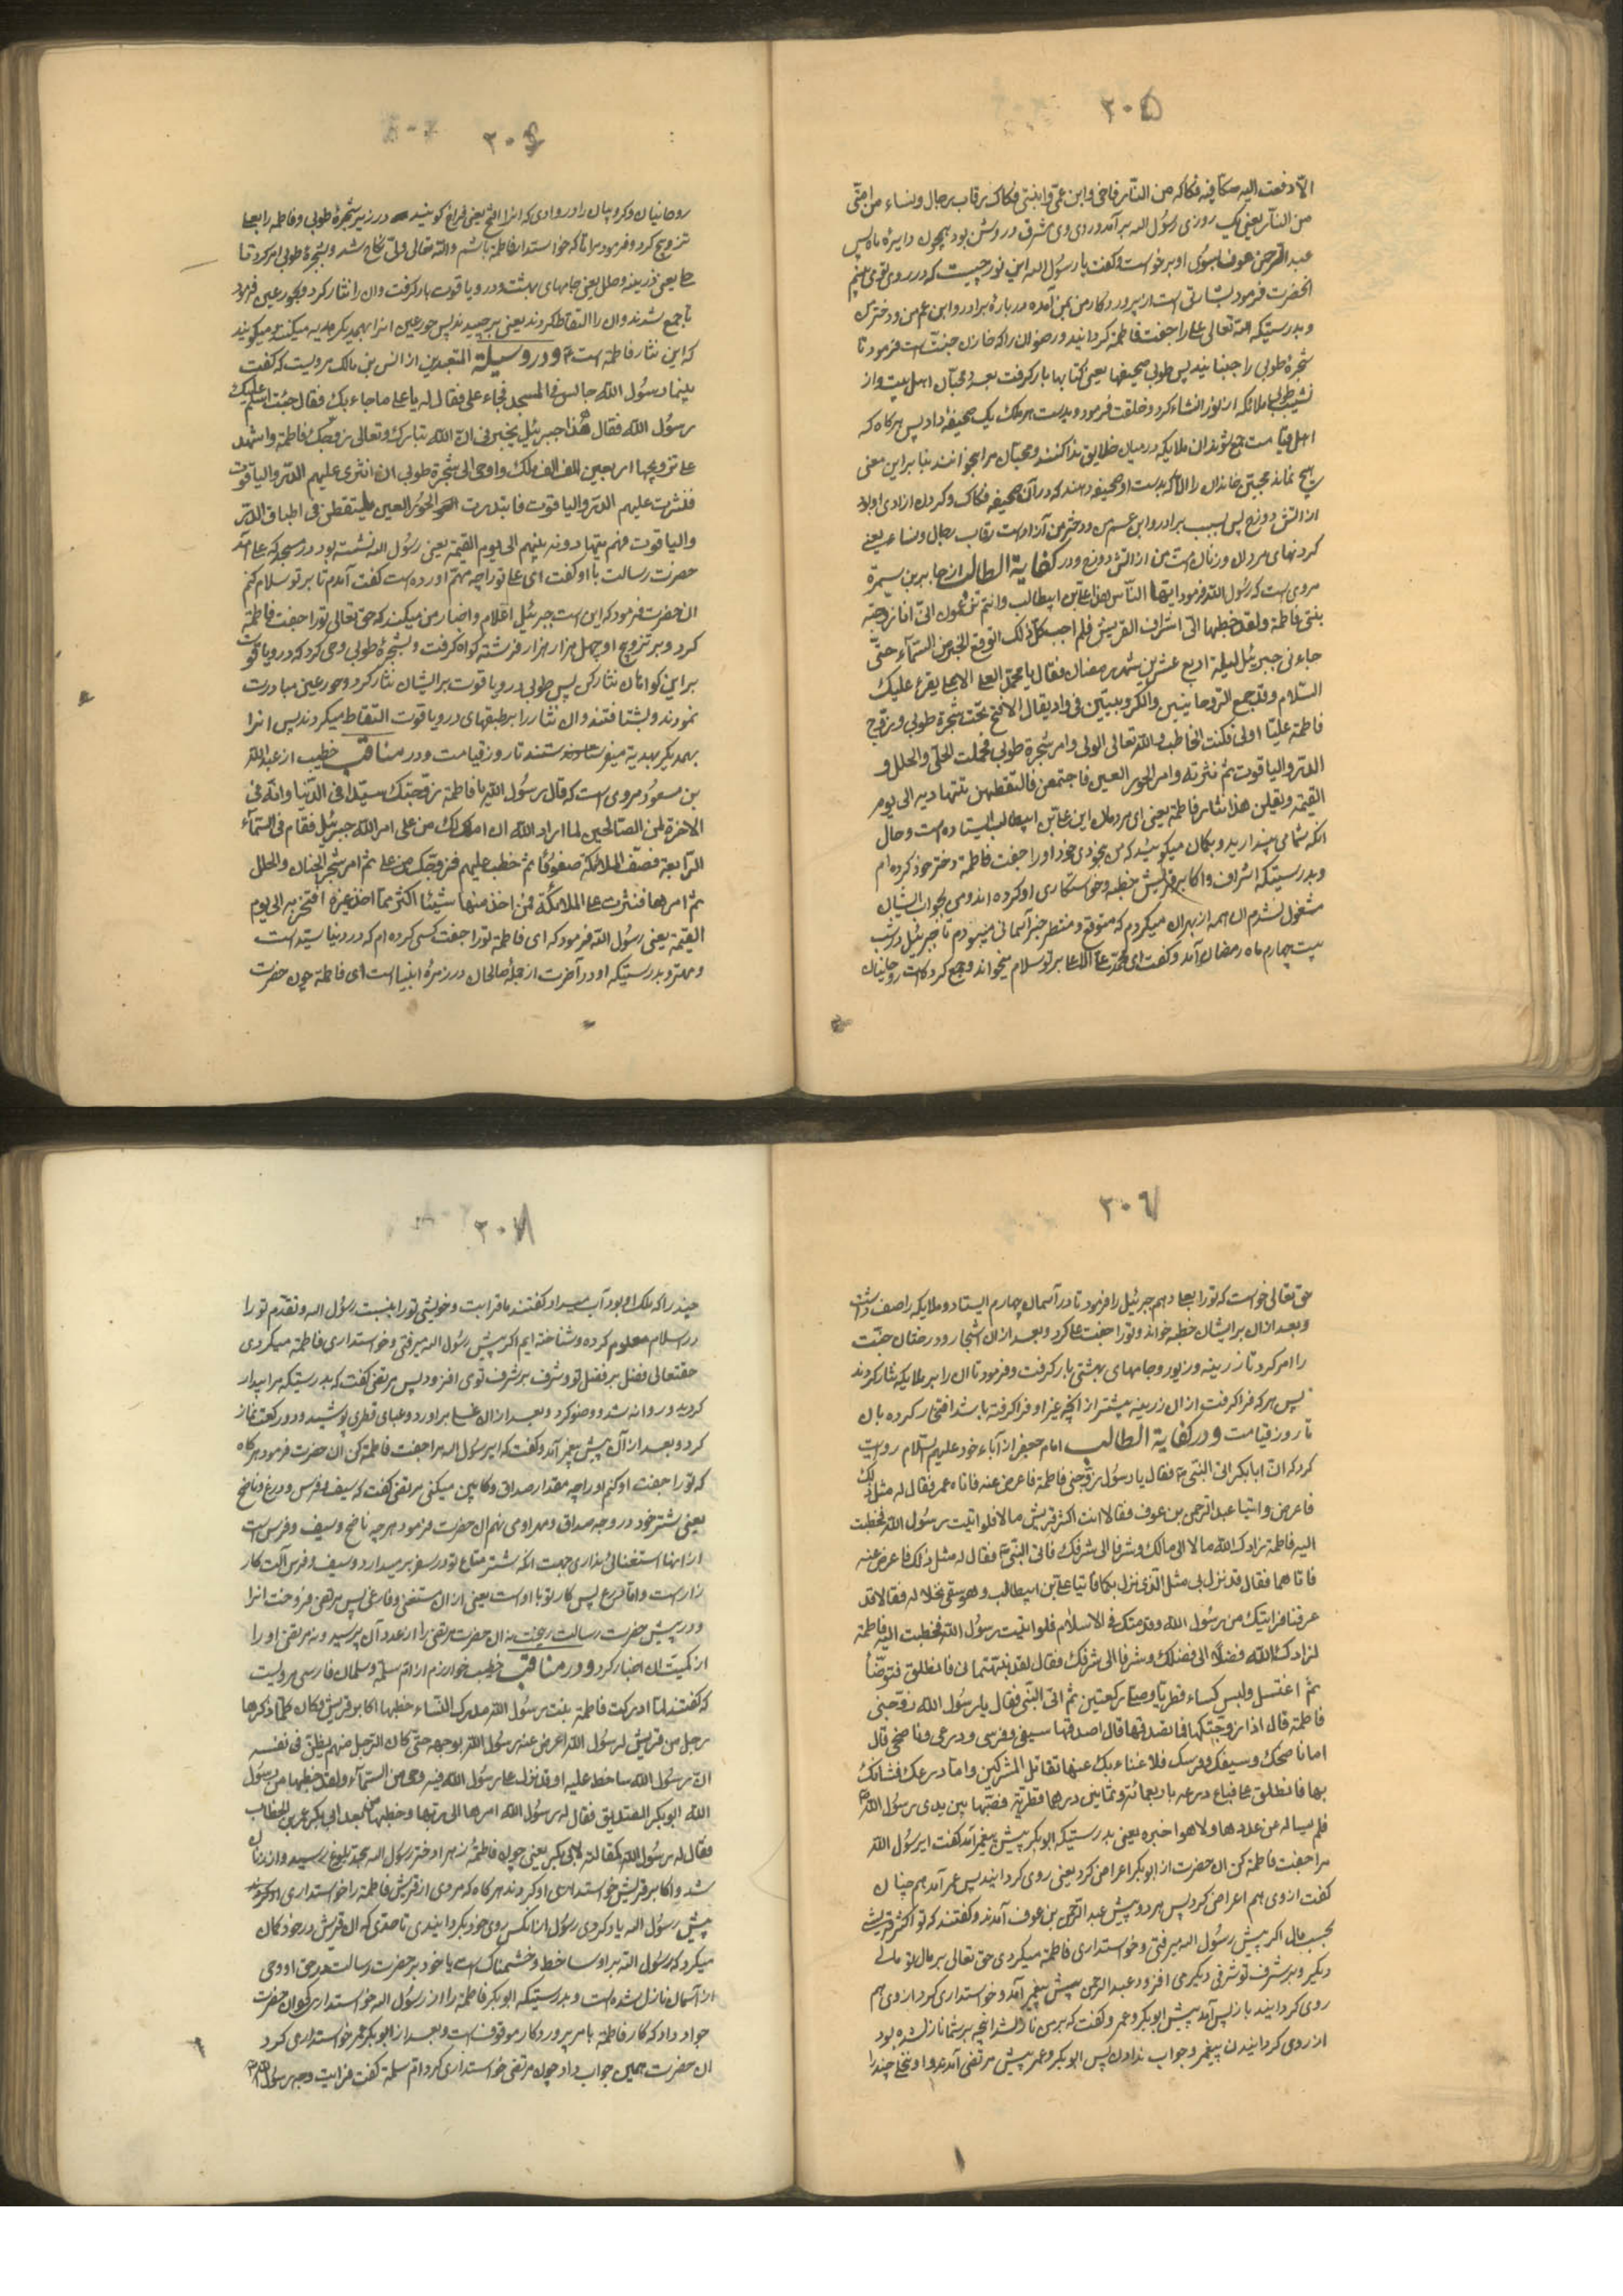 ۳۰۵
الا دفعت الیه صکا فیه فکاکه من النار فاخی وابن عمی وابنتی فکاک رقاب رجال ونساء من امتی
من النار یعنی یک روزی رسول الله برآمد و روی وی مشرق و روشن بود همچون دایره ماه پس
عبد الرحمن عوف بسوی او برخواست وکفت یا رسول الله این نور چیست که در روی تو می بینم
انحضرت فرمود بشارتی است از پروردکار من بمن آمده درباره برادر وابن عم من ودختر من
وبدرستیکه الله تعالی علی را جفت فاطمه کردانید ورضوان را که خازن جنت است فرمود تا
شجرۀ طوبی را جنبانید پس طوبی صحیفها یعنی کتابها بار کرفت بعدد محبان اهل بیت واز
نشیب طوبی ملائکه از نور انشاء کرد وخلقت فرمود وبدست هر ملک یک صحیفه داد پس هرکاه که
اهل قیامت جمع شوند ان ملایکه در میان خلایق ندا کنند ومحبان مرا بخوانند بنابراین معنی
هیچ نماند محبتی خاندان را الا که بدست او صحیفه دهند که در آن صحیفه فکاک وکردن ازادی او بود
از اتش دوزخ پس بسبب برادر وابن عم من ودختر من آزاد است رقاب رجال ونساء یعنی
کردنهای مردان وزنان امت من از اتش دوزخ ودر کفایة الطالب از جابر بن سمرة
مروی است که رسول الله فرمود ایها الناس هذا علی بن ابیطالب وانتم تزعمون انی انا زوجته
بنتی فاطمة ولقد خطبها الی اشراف القریش فلم اجب کل ذلک اتوقع الخبر من السماء حتی
جاءنی جبرئیل لیلة اربع عشرین شهر رمضان فقال یا محمد العلی الاعلی یقرء علیک
السلام وقد جمع الروحانیین والکروبیین فی واد یقال الافیح تحت شجرة طوبی وزوج
فاطمة علیا اولی فکنت الخاطب والله تعالی الولی وامر شجرة طوبی فحملت الحلی والحلل و
الدر والیاقوت ثم نثرته وامر الحور العین فاجتمعن فالتقطن فهن یتهادینه الی یوم
القیمة ویقلن هذا نثار فاطمة یعنی ای مردمان این علی بن ابیطالب ایستاده است وحال
انکه شما می پندارید وبکمان میکوئید که من بخودی خود او را جفت فاطمة دختر خود کرده ام
وبدرستیکه اشراف واکابر قریش خطبه وخواستکاری او کرده اند ومن بجواب ایشان
مشغول نشدم ان همه از بهر ان میکردم که متوقع ومنتظر خبر آسمانی میبودم تا جبرئیل در شب
بیست چهارم ماه رمضان آمد وکفت ای محمد علی الاعلی بر تو سلام میخواند وجمع کرده است روحانیان
۳۰۶
روحانیان وکروبیان را در وادی که انرا افیح یعنی فراخ کویند در زیر شجرۀ طوبی وفاطمه را بعلی
تزویج کرد وفرمود مرا تا که خواستدار فاطمة باشم والله تعالی ولی نکاح شد وشجرۀ طوبی امر کرد تا
حلی یعنی زرینه وحلل یعنی جامهای بهشت ودر ویاقوت بار کرفت وان را نثار کرد وبحور عین فرمود
تا جمع شدند وان را التقاط کردند یعنی برچیدند پس حور عین انرا بهمدیکر هدیه میکنند ومیکویند
که این نثار فاطمه است ودر وسیلة المتعبدین از انس بن مالک مرویست که کفت
بینما رسول الله جالس فی المسجد فجاء علی فقال له یا علی ما جاء بک فقال جئت اسلم علیک
رسول الله فقال هذا جبرئیل یخبرنی ان الله تبارک وتعالی زوجک فاطمة واشهد
علی تزویجها اربعین الف الف ملک واوحی الی شجرة طوبی ان انثری علیهم الدر والیاقوت
فنثرت علیهم الدر والیاقوت فابتدرت الحور العین یلتقطن فی اطباق الدر
والیاقوت فهم یتهادونه بینهم الی یوم القیمة یعنی رسول الله نشسته بود در مسجد که علی آمد
حضرت رسالت با او کفت ای علی تو را چه مهتم اورده است کفت آمدم تا بر تو سلام کنم
ان حضرت فرمود که این است جبرئیل اعلام واخبار من میکند که حق تعالی تو را جفت فاطمة
کرد وبر تزویج او چهل هزار هزار فرشته کواه کرفت وبشجرۀ طوبی وحی کرد که در ویاقوت
بر این کواهان نثار کن پس طوبی در ویاقوت بر ایشان نثار کرد وحور عین مبادرت
نمودند وبشتافتند وان نثار را بر طبقهای در ویاقوت التقاط میکردند پس انرا
بهمدیکر بهدیه میفرستادند تا روز قیامت ودر مناقب خطیب از عبدالله
بن مسعود مروی است که قال رسول الله یا فاطمة زوجتک سیدا فی الدنیا وانه فی
الاخرة لمن الصالحین لما اراد الله ان املکک من علی امر الله جبرئیل فقام فی السماء
الرابعة فصف الملائکة صفوفا ثم خطب علیهم فزوجک من علی ثم امر شجر الجنان والحلل
ثم امرها فنثرت علی الملائکة فمن اخذ منها شیئا اکثر مما اخذ غیره افتخر به الی یوم
القیمة یعنی رسول الله فرمود که ای فاطمة تو را جفت کسی کرده ام که در دنیا سید است
ومهتر وبدرستیکه او در آخرت از جملۀ صالحان در زمرۀ انبیا است ای فاطمة چون حضرت
۳۰۷
حق تعالی خواست که تو را بعلی دهم جبرئیل را فرمود تا در آسمان چهارم ایستاد وملایکه را صف داشت
وبعد از ان بر ایشان خطبه خواند وتو را جفت علی کرد وبعد از ان اشجار ودرختان جنت
را امر کرد تا زرینه وزیور وجامهای بهشتی بار کرفت وفرمود تا ان را بر ملایکه نثار کردند
پس هر که فرا کرفت از ان زرینه بیشتر از انچه غیر او فرا کرفته باشد افتخار کرده بان
تا روز قیامت ودر کفایة الطالب امام جعفر از آباء خود علیهم السلام روایت
کرد که ان ابا بکر اتی النبی فقال یا رسول زوجنی فاطمة فاعرض عنه فاتاه عمر فقال له مثل ذلک
فاعرض واتیا عبد الرحمن بن عوف فقالا انت اکثر قریش مالا فلو اتیت رسول الله فخطبت
الیه فاطمة زادک الله مالا الی مالک وشرفا الی شرفک فاتی النبی فقال له مثل ذلک فاعرض عنه
فاتاهما فقال قد نزل بی مثل الذی نزل بکما فاتیا علی بن ابیطالب وهو یسقی نخلا له فقالا قد
عرفنا قرابتک من رسول الله وقدمتک فی الاسلام فلو اتیت رسول الله فخطبت الیه فاطمة
لزادک الله فضلا الی فضلک وشرفا الی شرفک فقال لقد نبهتمانی فانطلق فتوضأ
ثم اغتسل ولبس کساء قطریا وصلی رکعتین ثم اتی النبی فقال یا رسول الله زوجنی
فاطمة قال اذا زوجتکها فما تصدقها قال اصدقها سیفی وفرسی ودرعی وناضحی قال
اما ناضحک وسیفک وفرسک فلا غناء بک عنها تقاتل المشرکین واما درعک فشانک
بها فانطلق علی فباع درعه باربعمائة وثمانین درهما قطریة فصبها بین یدی رسول الله
فلم یساله عن عددها ولا هو اخبره یعنی بدرستیکه ابوبکر پیش پیغمبر آمد کفت ای رسول الله
مرا جفت فاطمة کن ان حضرت از ابوبکر اعراض کرد یعنی روی کردانید پس عمر آمد هم چنان
کفت از وی هم اعراض کرد پس هر دو پیش عبد الرحمن بن عوف آمدند وکفتند که تو اکثر قریشی
بحسب مال اکر پیش رسول الله میرفتی وخواستداری فاطمة میکردی حق تعالی بر مال تو مالی
دیکر وبر شرف تو شرفی دیکر می افزود عبد الرحمن پیش پیغمبر آمد وخواستداری کرد از وی هم
روی کردانید باز پس آمد پیش ابوبکر وعمر وکفت که بر من نازل شد انچه بر شما نازل شده بود
از روی کردانیدن پیغمبر وجواب ندادن پس ابوبکر وعمر پیش مرتضی آمدند واو نخلی چند را
۳۰۸
چند را که ملک او بود آب میداد کفتند ما قرابت وخویشی تو را بنسبت رسول الله وتقدم تو را
در اسلام معلوم کرده وشناخته ایم اکر پیش رسول الله میرفتی وخواستداری فاطمة میکردی
حقتعالی فضل بر فضل تو وشرف بر شرف توی افزود پس مرتضی کفت که بدرستیکه مرا بیدار
کردید وروانه شد ووضو کرد وبعد از ان غسل براورد وعبای قطری پوشید ودو رکعت نماز
کرد وبعد از آن پیش پیغمبر آمد وکفت که ای رسول الله مرا جفت فاطمة کن ان حضرت فرمود هرکاه
که تو را جفت او کنم او را چه مقدار صداق وکابین میکنی مرتضی کفت که سیف وفرس ودرع وناضح
یعنی شتر خود در وجه صداق ومهر او می نهم ان حضرت فرمود هر چه ناضح وسیف وفرس است
از اینها استغنائی نداری جهت انکه شتر متاع تو در سفر برمیدارد وسیف وفرس آلت کار
زار است واما درع پس کار تو با اوست یعنی از ان مستغنی وفارغی پس مرتضی فروخت انرا
ودر پیش حضرت رسالت ریخت نه ان حضرت مرتضی را از عدد آن پرسید ونه مرتضی او را
از کمیت ان اخبار کرد ودر مناقب خطیب خوارزم از ام سلمة وسلمان فارسی مرویست
که کفتند لما ادرکت فاطمة بنت رسول الله مدرک النساء خطبها اکابر قریش وکان کلما ذکرها
رجل من قریش لرسول الله اعرض عنه رسول الله بوجهه حتی کان الرجل منهم یظن فی نفسه
ان رسول الله ساخط علیه او قد نزل علی رسول الله فیه وحی من السماء ولقد خطبها من رسول
الله ابوبکر الصدیق فقال له رسول الله امرها الی ربها وخطبها من بعد ابی بکر عمر بن الخطاب
فقال له رسول الله کمقالته لابی بکر یعنی چون فاطمة زهرا دختر رسول الله بحد بلوغ رسید واز زنان
شد واکابر قریش خواستداری او کردند هرکاه که مردی از قریش فاطمة را خواستداری او کردند
پیش رسول الله یاد کردی رسول از ان کس روی خود بکردانیدی تا حدی که ان قریش در خود کمان
میکرد که رسول الله بر او ساخط وخشمناک است یا خود بر حضرت رسالت در حق او وحی
از آسمان نازل شده است وبدرستیکه ابوبکر فاطمة را از رسول الله خواستداری کرد ان حضرت
جواب داد که کار فاطمة بامر پروردکار موقوف است وبعد از ابوبکر عمر خواستداری کرد
ان حضرت همین جواب داد چون مرتضی خواستداری کرد ام سلمة کفت فرایت وجه رسول الله